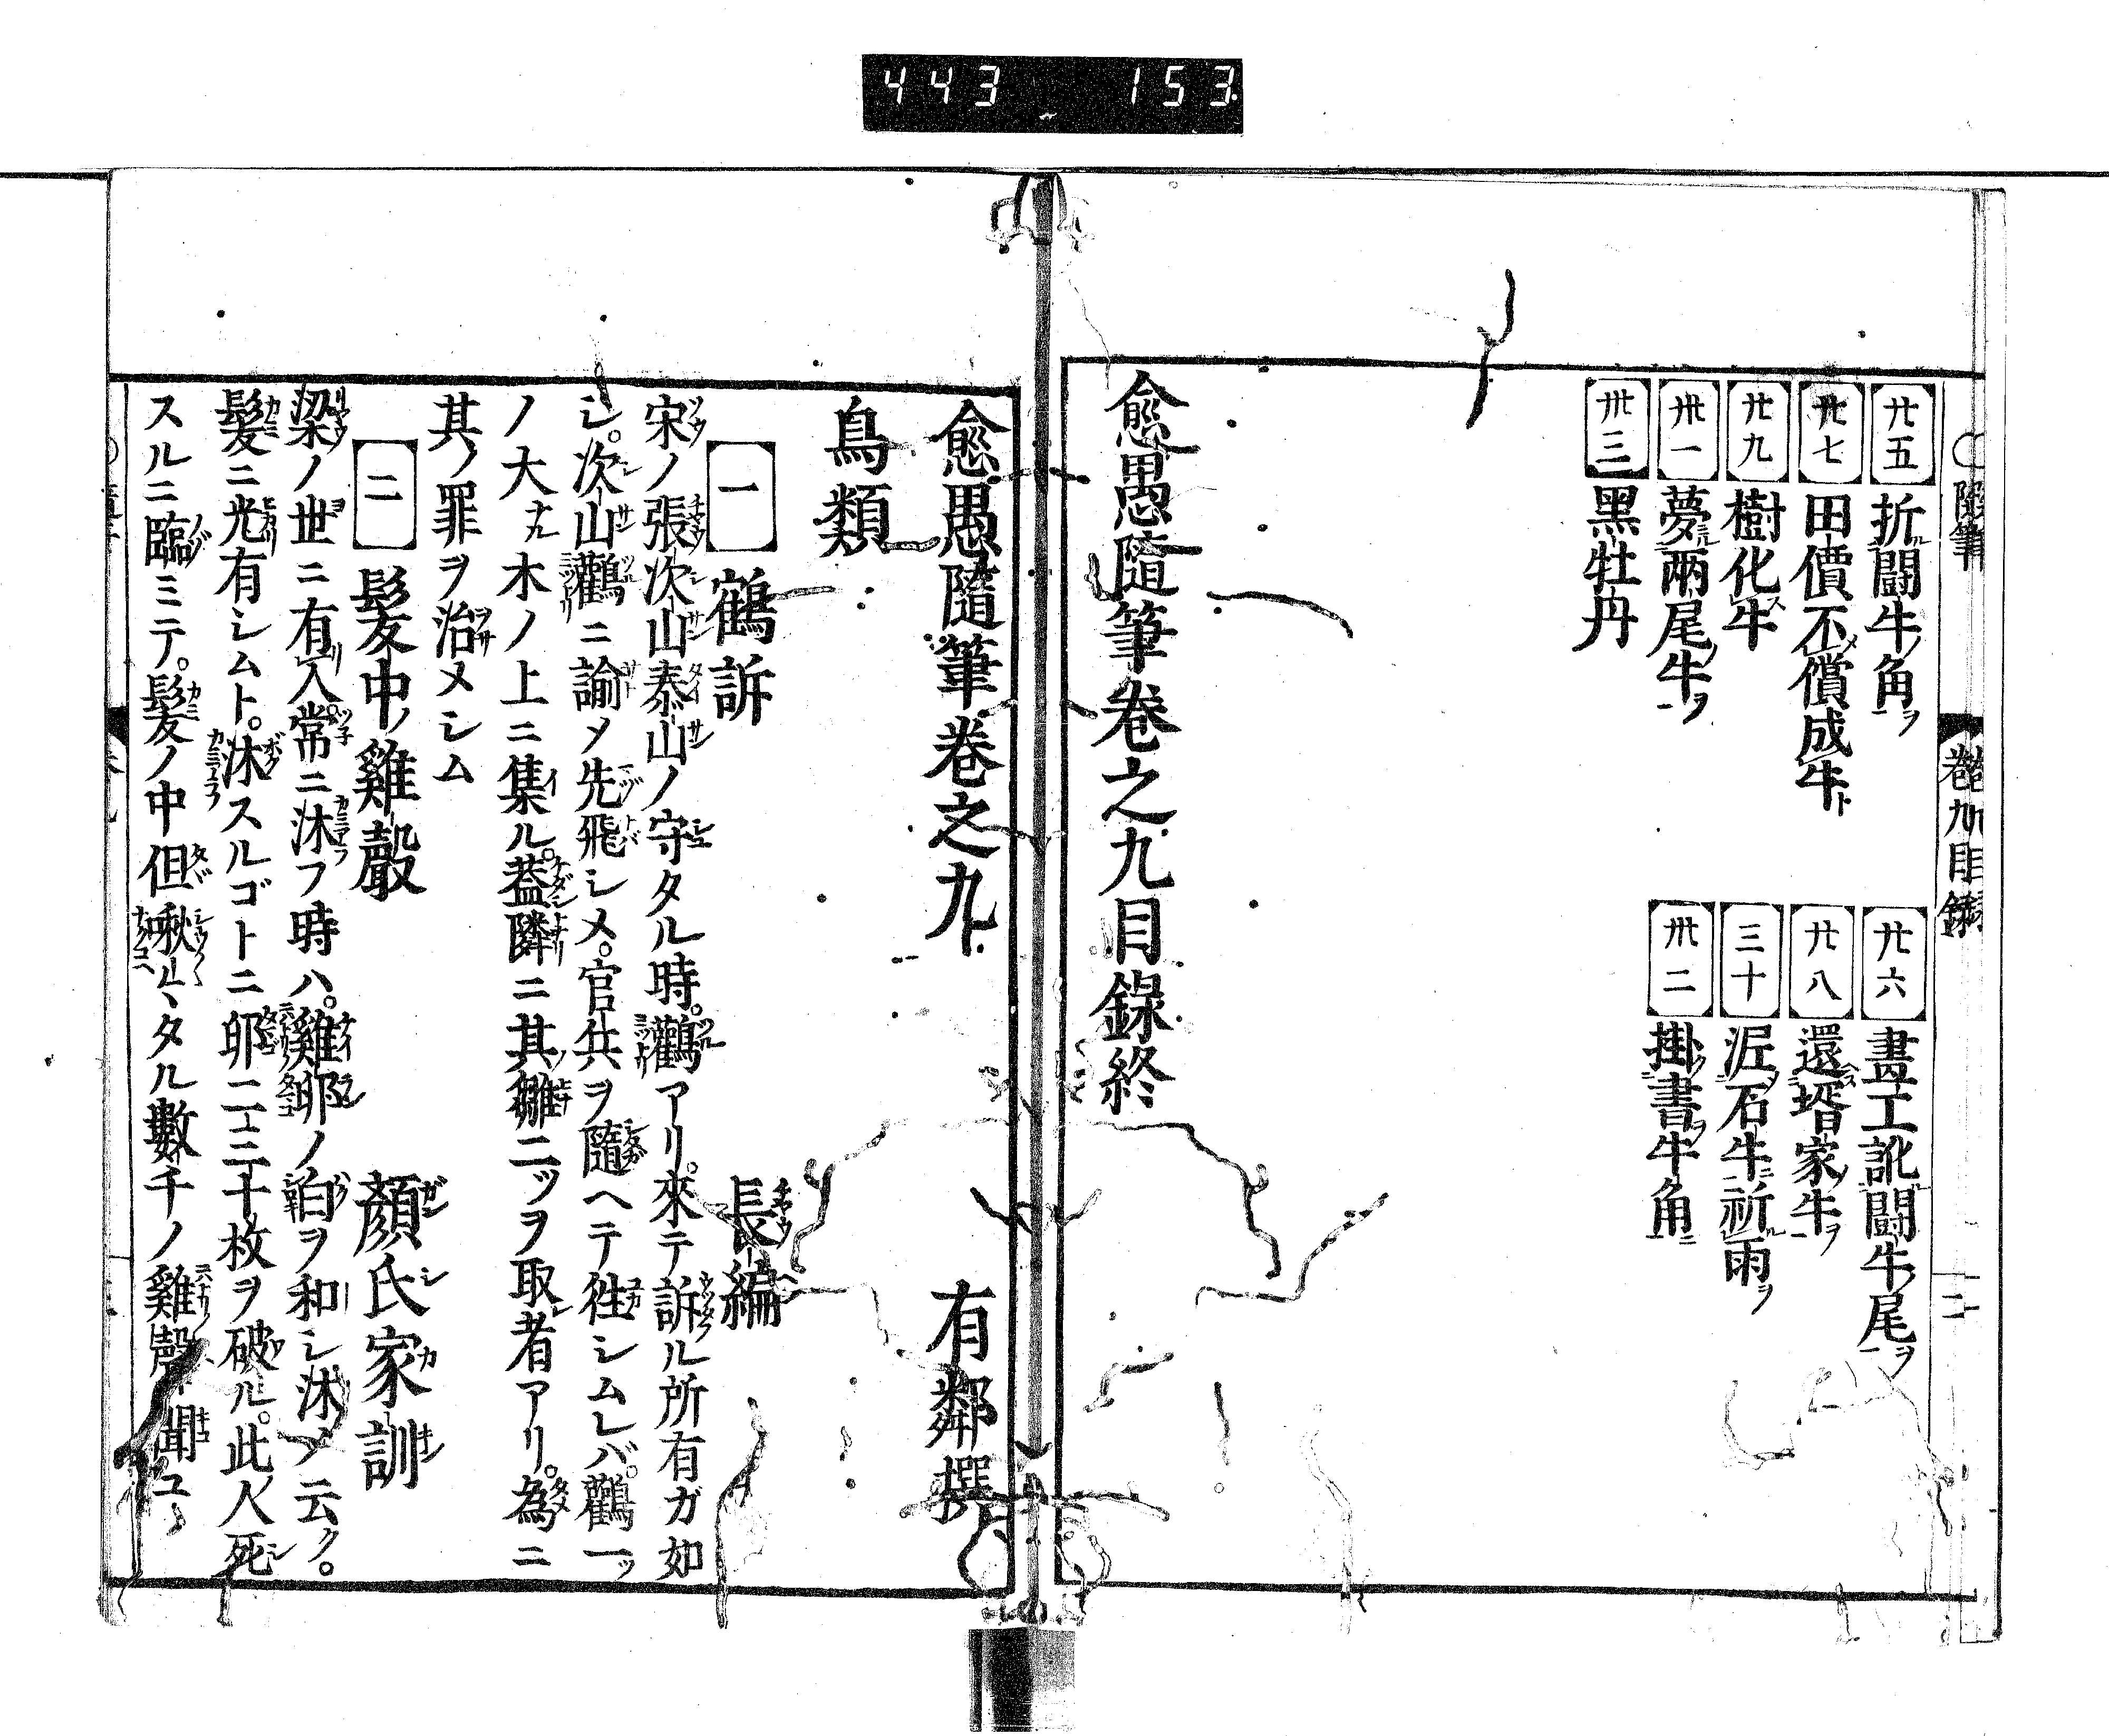 443 153
隨筆 卷九目録 二
廿五 折闘牛ノ角ヲ
廿六 畫工訛闘牛ノ尾ヲ
廿七 田價不償成牛ト
廿八 還壻家ノ牛ヲ
廿九 樹化牛
三十 泥石牛ニ祈雨ヲ
卅一 夢兩尾ノ牛ヲ
卅二 掛書牛角ニ
卅三 黑牡丹
愈愚隨筆卷之九目録終
愈愚隨筆卷之九
有鄰撰
鳥類
一 鶴訴 長編
宋ノ張次山泰山ノ守タル時。鸛アリ。來テ訴ル所有ガ如
シ。次山鸛ニ諭メ先飛シメ。官兵ヲ隨ヘテ徃シムレバ。鸛一ツ
ノ大ナル木ノ上ニ集ル。蓋隣ニ其雛二ツヲ取者アリ。為ニ
其ノ罪ヲ治メシム
二 髮中ノ雞聲 顏氏家訓
梁ノ世ニ有人。常ニ沐フ時ハ。雞卵ノ白ヲ和シ沐メ云ク。
髮ニ光有シムト。沐スルゴトニ卵二三十枚ヲ破ル。此人死
スルニ臨ミテ。髮ノ中但啾々タル數千ノ雞聲聞ユ